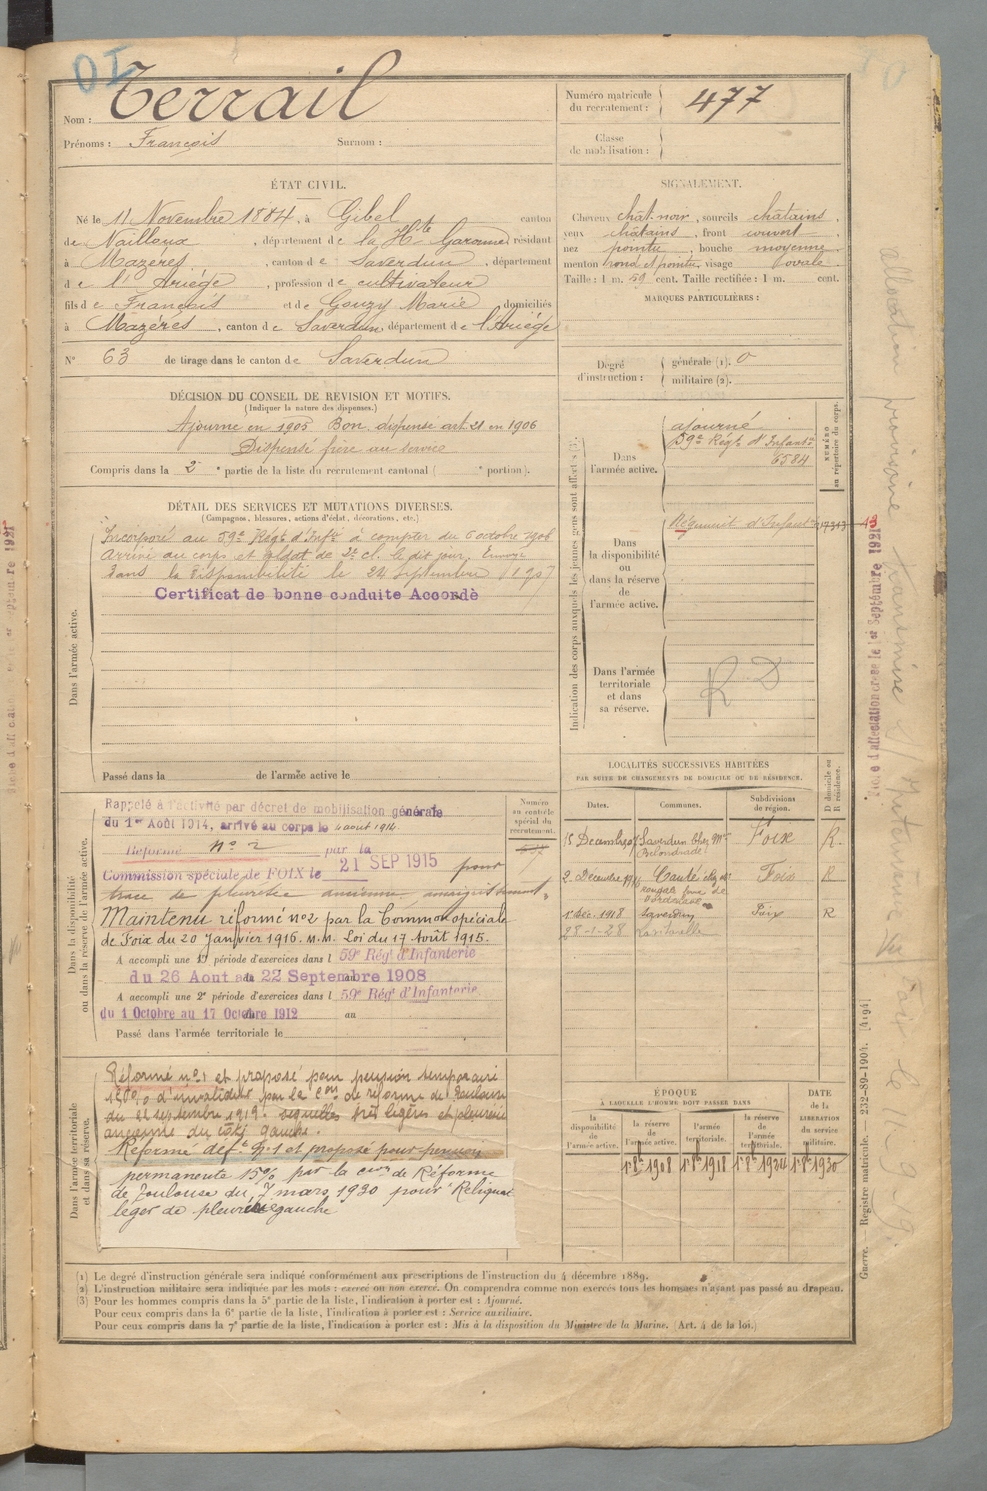 OI
Nom : Terrail
Prénoms : François Surnom :
Numéro matricule
du recrutement : 477
Classe
de mobilisation :
ÉTAT CIVIL.
Né le 11 Novembre 1884, à Gibel canton
de Nailloux, département de la Hte Garonne, résidant
à Mazères, canton de Saverdun, département
de l'Ariège, profession de cultivateur
fils de François et de Gouzy Marie domiciliés
à Mazères, canton de Saverdun, département de l'Ariège
N° 63 de tirage dans le canton de Saverdun
SIGNALEMENT.
Cheveux chat. noir, sourcils châtains,
yeux châtains, front couvert,
nez pointu, bouche moyenne
menton rond et pointu, visage ovale.
Taille : 1 m. 59 cent. Taille rectifiée : 1 m. cent.
MARQUES PARTICULIÈRES :
Degré
d'instruction :
générale (1). 0
militaire (2).
DÉCISION DU CONSEIL DE REVISION ET MOTIFS.
(Indiquer la nature des dispenses.)
Ajourné en 1905 Bon. dispensé art. 21 en 1906
Dispensé frère au service
Compris dans la 2e partie de la liste du recrutement cantonal ( e portion).
DÉTAIL DES SERVICES ET MUTATIONS DIVERSES.
(Campagnes, blessures, actions d'éclat, décorations, etc.)
Dans l'armée active.
Incorporé au 59e Régt d'Infie à compter du 6 octobre 1906
Arrivé au corps et soldat de 2e cl. le dit jour. Envoyé
dans la disponibilité le 24 Septembre 1907
Certificat de bonne conduite Accordé
Passé dans la de l'armée active le
Indication des corps auxquels les jeunes gens sont affectés (3).
NUMÉRO
au répertoire du corps.
Dans
l'armée active.
ajourné
59e Régt d'Infantie
6584
Dans
la disponibilité
ou
dans la réserve
de
l'armée active.
Régiment d'Infantie
Dans l'armée
territoriale
et dans
sa réserve.
R D
LOCALITÉS SUCCESSIVES HABITÉES
PAR SUITE DE CHANGEMENTS DE DOMICILE OU DE RÉSIDENCE.
Dates. Communes. Subdivisions
de région.
D domicile ou
R résidence.
15 Décembre 07 Saverdun chez Mr Foix R.
2 Décembre Canté chez Mr Foix R
1er Déc. 1918 Saverdun Foix R
28-1-28
Dans la disponibilité
ou dans la réserve de l'armée active.
Numéro
au contrôle
spécial du
recrutement.
Rappelé à l'activité par décret de mobilisation générale
du 1er Août 1914, arrivé au corps le 4 aout 1914.
Réformé n° 2 par la
Commission spéciale de FOIX le 21 SEP 1915 pour
trace de pleurésie ancienne, amaigrissement.
Maintenu réformé n°2 par la Common spéciale
de Foix du 20 Janvier 1916. M.M. Loi du 17 Août 1915.
A accompli une 1e période d'exercices dans l 59e Régt d'Infanterie
du 26 Aout au 22 Septembre 1908
A accompli une 2e période d'exercices dans l 59e Régt d'Infanterie
du 1 Octobre au 17 Octobre 1912 au
Passé dans l'armée territoriale le
Dans l'armée territoriale
et dans sa réserve.
Réformé n° 1 et proposé pour pension temporaire
15% d'invalidité par la Con de réforme de Toulouse
du 22 septembre 1919. sequelles très légères et pleurésie
ancienne du côté gauche.
Réformé déf.t n° 1 et proposé pour pension
permanente 15% par la con de Réforme
de Toulouse du 7 mars 1930 pour "Reliquat
léger de pleurésie gauche
ÉPOQUE
À LAQUELLE L'HOMME DOIT PASSER DANS
DATE
de la
LIBÉRATION
du service
militaire.
la
disponibilité
de
l'armée active.
la réserve
de
l'armée active.
l'armée
territoriale.
la réserve
de
l'armée
territoriale.
1er 8bre 1908 1er 8bre 1918 1er 8bre 1924 1er 8bre 1930
(1) Le degré d'instruction générale sera indiqué conformément aux prescriptions de l'instruction du 4 décembre 1889.
(2) L'instruction militaire sera indiquée par les mots : exercé ou non exercé. On comprendra comme non exercés tous les hommes n'ayant pas passé au drapeau.
(3) Pour les hommes compris dans la 5e partie de la liste, l'indication à porter est : Ajourné.
Pour ceux compris dans la 6e partie de la liste, l'indication à porter est : Service auxiliaire.
Pour ceux compris dans la 7e partie de la liste, l'indication à porter est : Mis à la disposition du Ministre de la Marine. (Art. 4 de la loi.)
Guerre. — Registre matricule. — 232-89-1904. [4194]
Fiche d'affectation créée le 1er Septembre 1921
allocation provisoire transmise